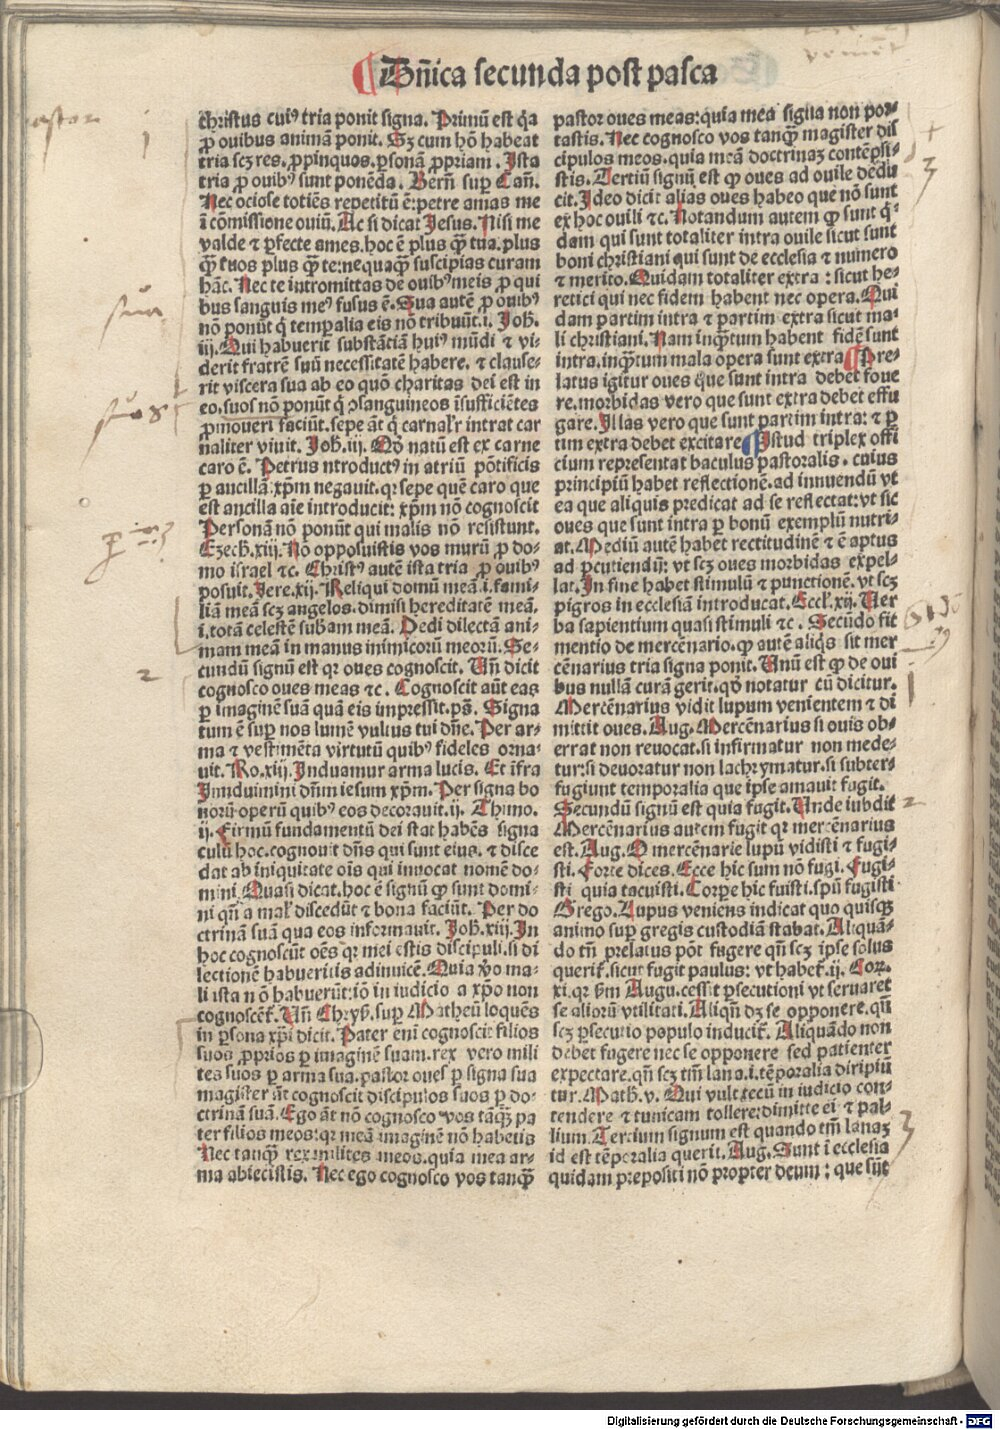 Dñica secunda post pasca
christus cuiꝰ tria ponit signa. Primū est qꝛ
ꝓ ouibus animā ponit. Sꝫ cum hō habeat
tria scꝫ res. ꝓpinquos. ꝑsonā ꝓpriam. Ista
tria ꝓ ouibꝰ sunt ponēda. Bern̄ sup Cañ.
Nec ociose totiēs repetitū ē: petre amas me
ī cōmissione ouiū. Ac si dicat Jesus. Nisi me
valde ⁊ ꝑfecte ames. hoc ē plus qꝫ̄ tua. plus
qꝫ̄ tuos plus qꝫ̄ te: nequaqꝫ̄ suscipias curam
hāc. Nec te intromittas de ouibꝰ meis ꝓ qui
bus sanguis meꝰ fusus ē. Sua autē ꝓ ouibꝰ
nō ponūt q̇ temꝑalia eis nō tribuūt. i. Joh̄.
iij. Qui habuerit substātiā huiꝰ mūdi ⁊ vi-
derit fratrē suū necessitatē habere. ⁊ clause-
rit viscera sua ab eo quō charitas dei est in
eo. suos nō ponūt q̇ ꝯsanguineos īsufficiētes
ꝓmoueri faciūt. sepe āt q̇ carnalr̄ intrat car
naliter viuit. Joh̄. iij. Qḋ natū est ex carne
caro ē. Petrus ntroductꝰ in atriū pōtificis
ꝑ ancillā: xp̄m negauit. qꝛ sepe quē caro que
est ancilla aīe introducit: xp̄m nō cognoscit
Personā nō ponūt qui malis nō resistunt.
Ezech̄. xiij. Nō opposuistis vos murū ꝓ do-
mo israel ⁊c. Christꝰ autē ista tria ꝓ ouibꝰ
posuit. Jere. xij. Reliqui domū meā. i. fami-
liā meā scꝫ angelos. dimisi hereditatē meā.
i. totā celestē subam meā. Dedi dilectā ani-
mam meā in manus inimicorū meorū. Se-
cundū signū est qꝛ oues cognoscit. Vñ dicit
cognosco oues meas ⁊c. Cognoscit aūt eas
ꝑ imaginē suā quā eis impressit. ps̄. Signa
tum ē sup nos lumē vultus tui dn̄e. Per ar-
ma ⁊ vestimēta virtutū quibꝰ fideles orna-
uit. Ro. xiij. Induamur arma lucis. Et īfra
Jmduimini dn̄m iesum xp̄m. Per signa bo
norū operū quibꝰ eos decorauit. ij. Thimo.
ij. Firmū fundamentū dei stat habēs signa
culū hoc. cognouit dn̄s qui sunt eius. ⁊ disce
dat ab iniquitate oīs qui inuocat nomē do-
mini. Quasi dicat. hoc ē signū ꝙ sunt domi-
ni qñ a mal̄ discedūt ⁊ bona faciūt. Per do
ctrinā suā qua eos informauit. Joh̄. xiij. In
hoc cognoscūt oēs qꝛ mei estis discipuli. si di
lectionē habueritis adinuicē. Quia ꝟo ma-
li ista n ō habuerūt: iō in iudicio a xp̄o non
cognoscēt̄. Vñ Chrys̄. sup Matheū loquēs
in ꝑsona xp̄i dicit. Pater eni cognoscit filios
suos ꝓprios ꝑ imaginē suam. rex vero mili
tes suos ꝑ arma sua. pastor oues ꝑ signa sua
magister āt cognoscit discipulos suos ꝑ do-
ctrinā suā. Ego āt nō cognosco vos tāqꝫ̄ pa
ter filios meos: qꝛ meā imaginē nō habetis
Nec tanqꝫ̄ rex milites meos. quia mea ar-
ma abiecistis. Nec ego cognosco vos tanqꝫ̄
pastor oues meas: quia mea signa non por-
tastis. Nec cognosco vos tanqꝫ̄ magister dis
cipulos meos. quia meā doctrinaꝫ contēpsi-
stis. Tertiū signū est ꝙ oues ad ouile dedu
cit. Ideo dicit alias oues habeo que nō sunt
ex hoc ouili ⁊c. Notandum autem ꝙ sunt q̇-
dam qui sunt totaliter intra ouile sicut sunt
boni christiani qui sunt de ecclesia ⁊ numero
⁊ merito. Quidam totaliter extra: sicut he-
retici qui nec fidem habent nec opera. Qui
dam partim intra ⁊ partim extra sicut ma-
li christiani. Nam inqꝫ̄tum habent fidē sunt
intra. inqꝫ̄tum mala opera sunt extra ¶ Pre-
latus igitur oues que sunt intra debet foue
re. morbidas vero que sunt extra debet effu
gare. Illas vero que sunt partim intra: ⁊ ꝑ
tim extra debet excitare ¶ Istud triplex offi
cium representat baculus pastoralis. cuius
principiū habet reflectionē. ad innuendū vt
ea que aliquis predicat ad se reflectat: vt sic
oues que sunt intra ꝑ bonū exemplū nutri-
at. Mediū autē habet rectitudinē ⁊ ē aptus
ad ꝑcutiendū: vt scꝫ oues morbidas expel-
lat. In fine habet stimulū ⁊ punctionē. vt scꝫ
pigros in ecclesiā introducat. Eccl̄. xij. Ver
ba sapientium quasi stimuli ⁊c. Secūdo fit
mentio de mercēnario. ꝙ autē aliq̇s sit mer
cēnarius tria signa ponit. Vnū est ꝙ de oui
bus nullā curā gerit. qḋ notatur cū dicitur.
Mercēnarius vidit lupum venientem ⁊ di
mittit oues. Aug. Mercēnarius si ouis ob-
errat non reuocat. si infirmatur non mede-
tur: si deuoratur non lachrymatur. si subter-
fugiunt temporalia que ipse amauit fugit.
Secundū signū est quia fugit. Vnde subdit
Mercēnarius autem fugit qꝛ mercēnarius
est. Aug. O mercēnarie lupū vidisti ⁊ fugi-
sti. Forte dices. Ecce hic sum nō fugi. Fugi-
sti quia tacuisti. Corpe hic fuisti. spū fugisti
Grego. Lupus veniens indicat quo quisqꝫ
animo sup gregis custodiā stabat. Aliquā-
do tn̄ prelatus pōt fugere qñ scꝫ ipse solus
querit̄. sicut fugit paulus: vt habet̄. ij. Cor.
xi. qꝛ sm̄ Augu. cessit ꝑsecutioni vt seruaret
se aliorū vtilitati. Aliqñ dꝫ se opponere. qñ
scꝫ ꝑsecutio populo inducit̄. Aliquādo non
debet fugere nec se opponere sed patienter
expectare. qñ scꝫ tm̄ lana. i. tēporalia diripiū
tur. Math̄. v. Qui vult tecū in iudicio con-
tendere ⁊ tunicam tollere: dimitte ei ⁊ pal-
lium. Tercium signum est quando tm̄ lanaꝫ
id est tēporalia querit. Aug. Sunt ī ecclesia
quidam prepositi nō propter deum: que sūt
sua
suos
1
2
3
1
2
3
Digitalisierung gefördert durch die Deutsche Forschungsgemeinschaft - DFG